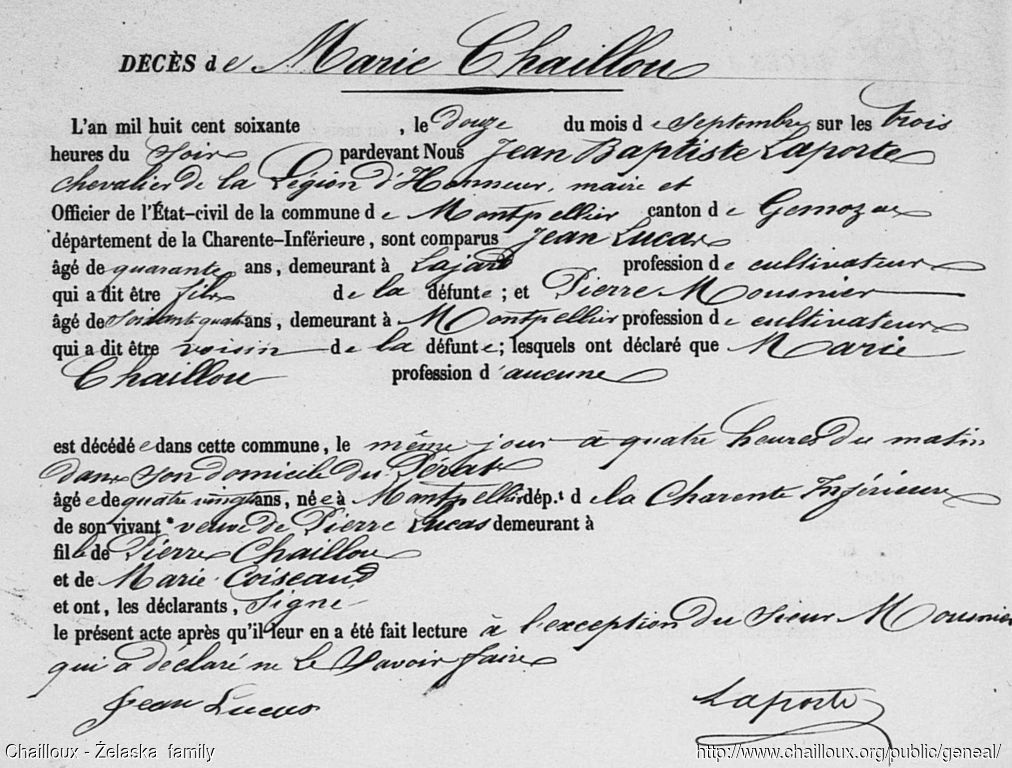 DÉCÈS de Marie Chaillou
L'an mil huit cent soixante , le douze du mois de Septembre sur les trois
heures du soir pardevant Nous Jean Baptiste Laporte
chevalier de la Légion d'Honneur, maire et
Officier de l'État-civil de la commune de Montpellier canton de Gemozac
département de la Charente-Inférieure, sont comparus Jean Lucas
âgé de quarante ans, demeurant à Lajard profession de cultivateur
qui a dit être fils de la défunte ; et Pierre Mousnier
âgé de soixante quatre ans, demeurant à Montpellier profession de cultivateur
qui a dit être voisin de la défunte ; lesquels ont déclaré que Marie
Chaillou profession d'aucune
est décédée dans cette commune, le même jour à quatre heures du matin
dans son domicile du Pérat
âgée de quatre vingt ans, née à Montpellier dép.t de la Charente Inférieure
de son vivant veuve de Pierre Lucas demeurant à
fille de Pierre Chaillou
et de Marie Coiseaud
et ont, les déclarants, signé
le présent acte après qu'il leur en a été fait lecture à l'exception du sieur Mousnier
qui a déclaré ne le savoir faire
Jean Lucas Laporte
Chailloux - Żelaska family http://www.chailloux.org/public/geneal/